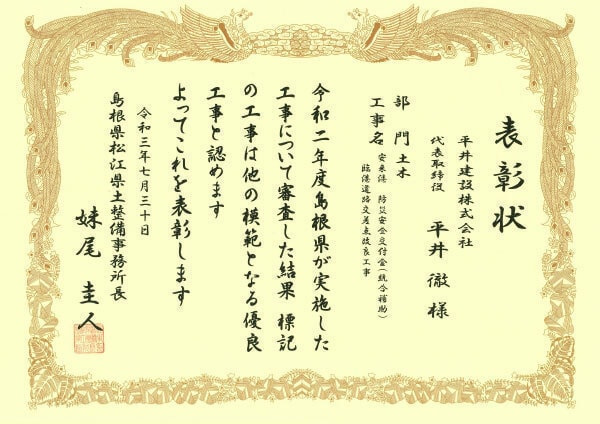 表彰状
平井建設株式会社
代表取締役 平井 徹 様
部門 土木
工事名 安来港 防災安全交付金(統合補助)
臨港道路交差点改良工事
令和二年度島根県が実施した
工事について審査した結果 標記
の工事は他の模範となる優良
工事と認めます
よってこれを表彰します
令和三年七月三十日
島根県松江県土整備事務所長
妹尾 圭人